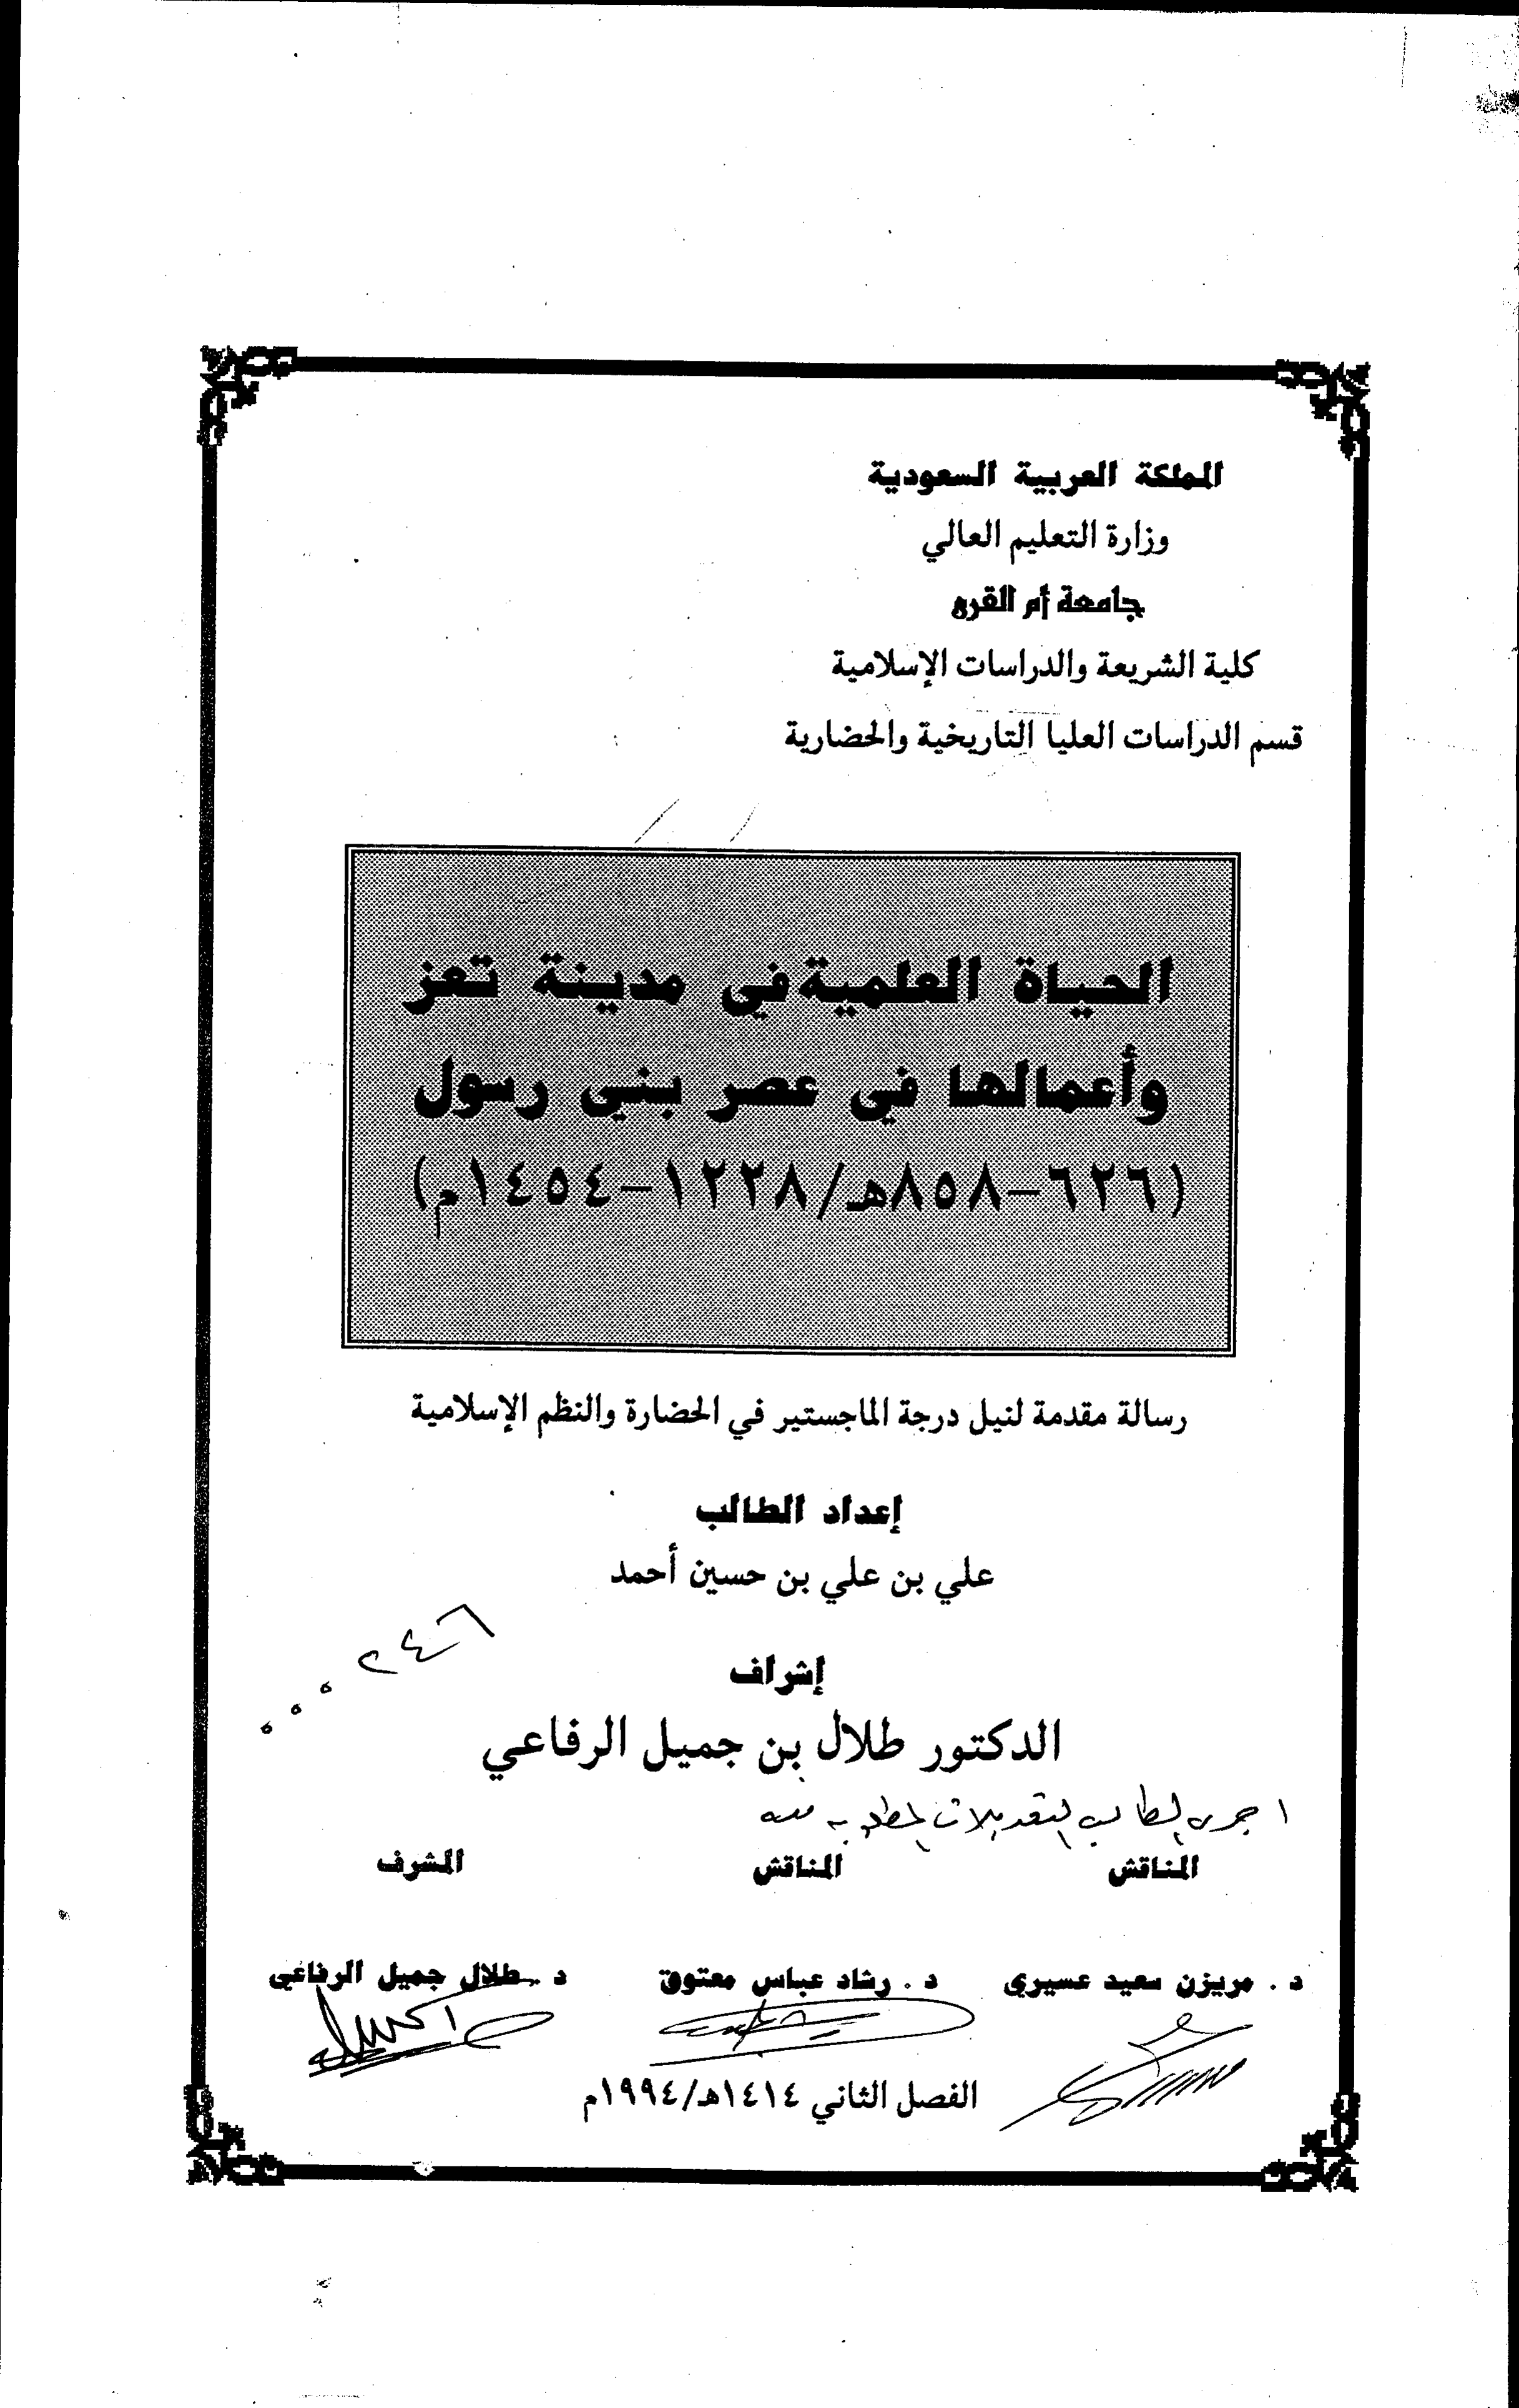 المملكة العربية السعودية
وزارة التعليم العالي
جامعة أم القرى
كلية الشريعة والدراسات الإسلامية
قسم الدراسات العليا التاريخية والحضارية
الحياة العلمية في مدينة تعز
وأعمالها في عصر بني رسول
(٦٢٦–٨٥٨هـ/١٢٢٨–١٤٥٤م)
رسالة مقدمة لنيل درجة الماجستير في الحضارة والنظم الإسلامية
إعداد الطالب
علي بن علي بن حسين أحمد
إشراف
الدكتور طلال بن جميل الرفاعي
اجرى الطالب التعديلات المطلوبة منه
المناقش المناقش المشرف
د . مريزن سعيد عسيري د . رشاد عباس معتوق د . طلال جميل الرفاعي
الفصل الثاني ١٤١٤هـ/١٩٩٤م